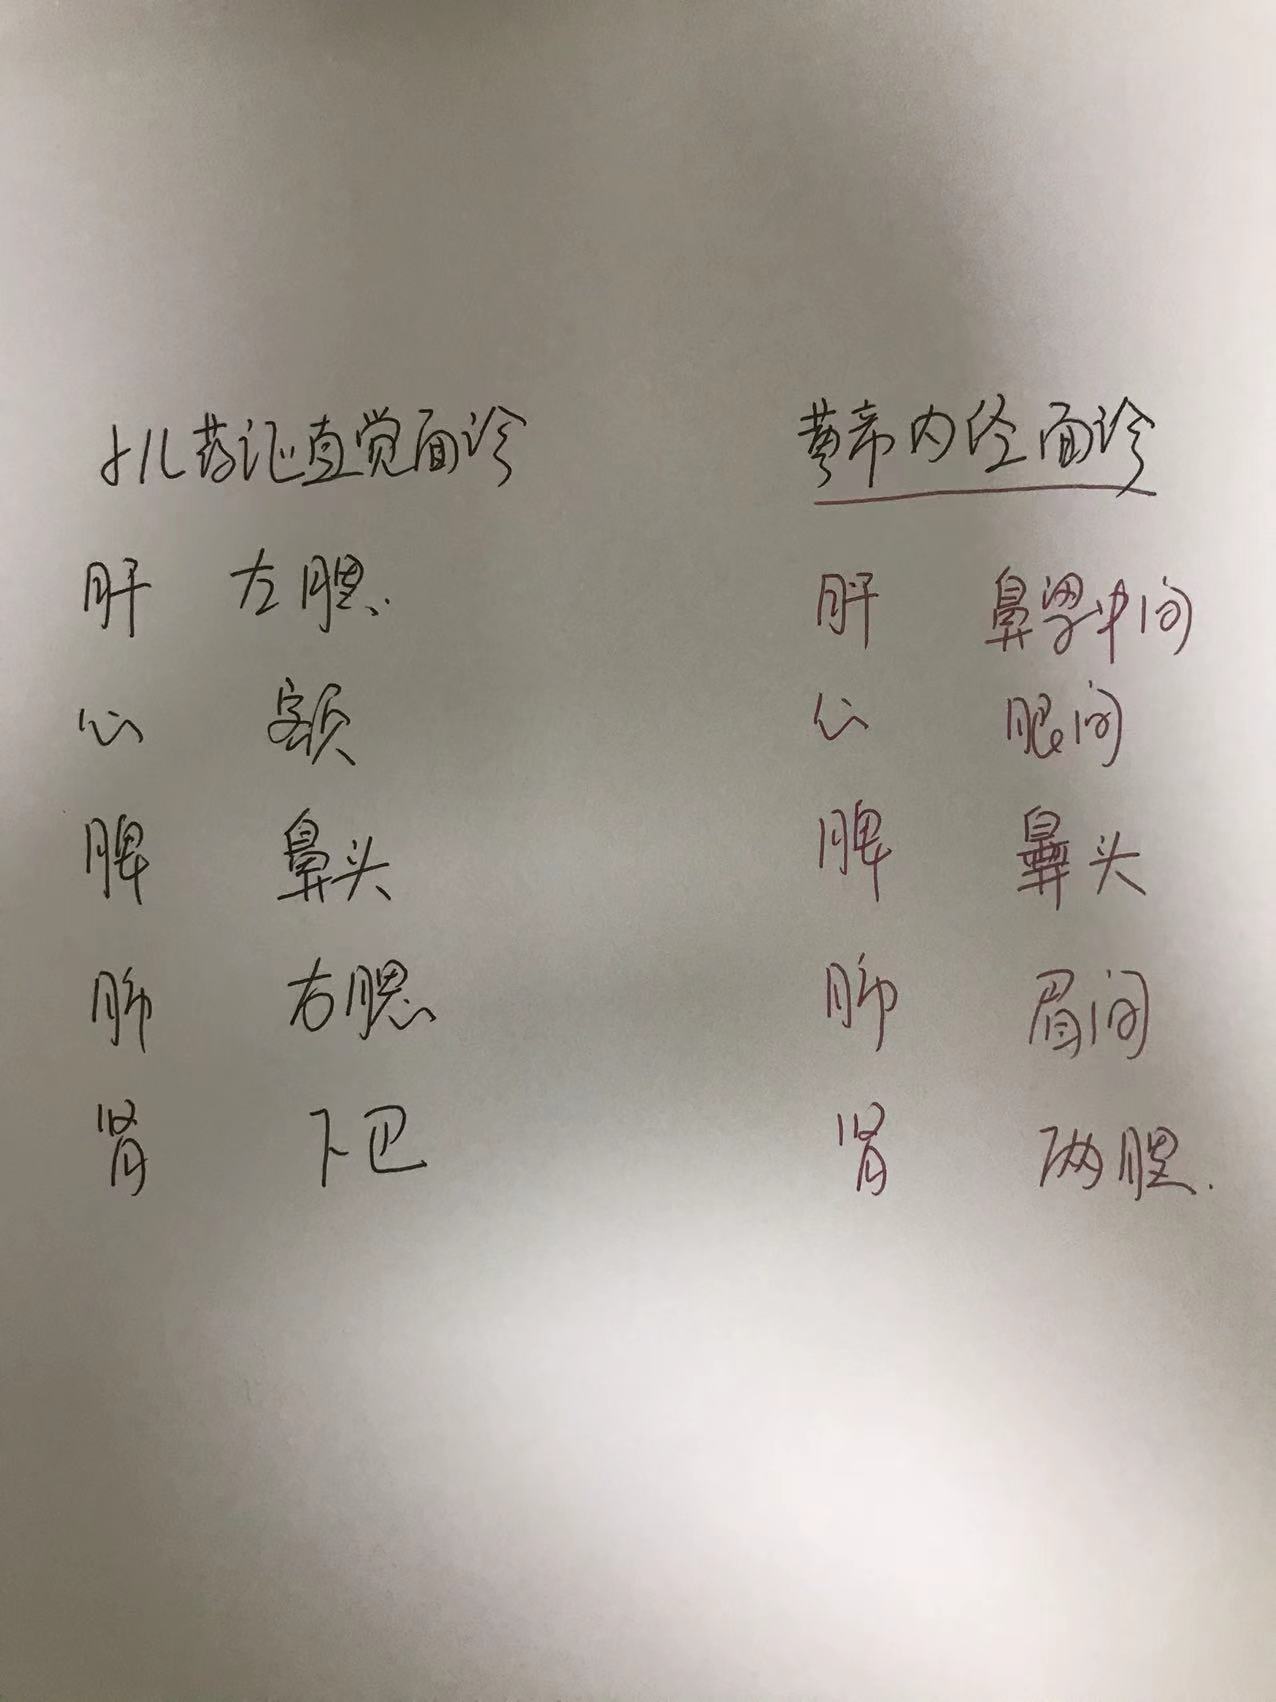 小儿药证直觉面诊
肝 左腮
心 额
脾 鼻头
肺 右腮
肾 下巴
黄帝内经面诊
肝 鼻梁中间
心 眼间
脾 鼻头
肺 眉间
肾 两腮.